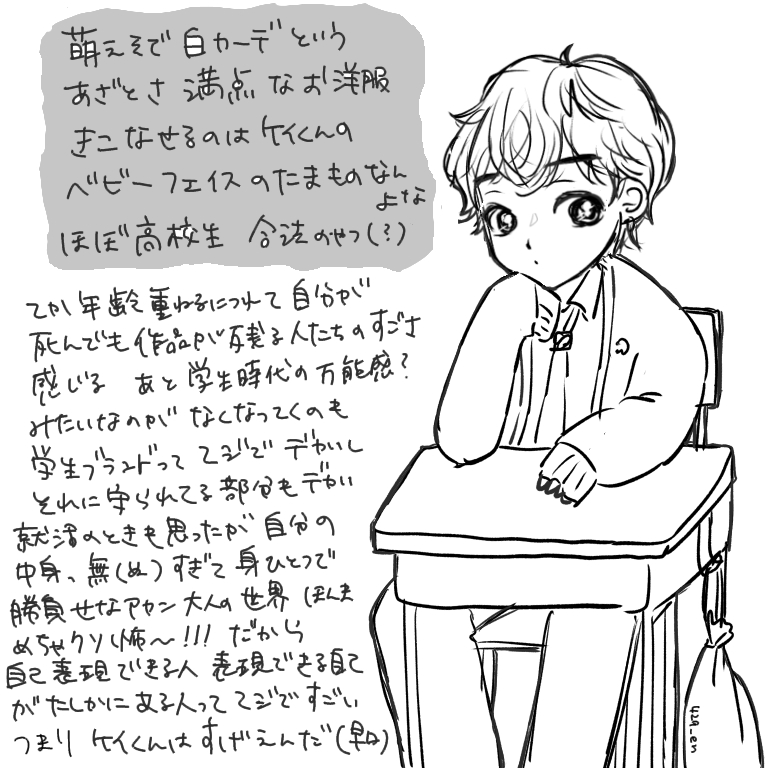 萌えそで白カーデという
あざとさ満点なお洋服
きこなせるのはケイくんの
ベビーフェイスのたまものなん
よな
ほぼ高校生 合法のやつ(?)
てか年齢重ねるにつれて自分が
死んでも作品が残る人たちのすごさ
感じる あと学生時代の万能感?
みたいなのがなくなってくのも
学生ブランドってマジでデかいし
それに守られてる部分もデかい
就活のときも思ったが自分の
中身っ無(ぬ)すぎて身ひとつで
勝負せなアカン大人の世界 ほんま
めちゃクソ怖〜!!! だから
自己表現できる人 表現できる自己
がたしかにある人ってマジですごい
つまり ケイくんはすげえんだ(早口)
429_en